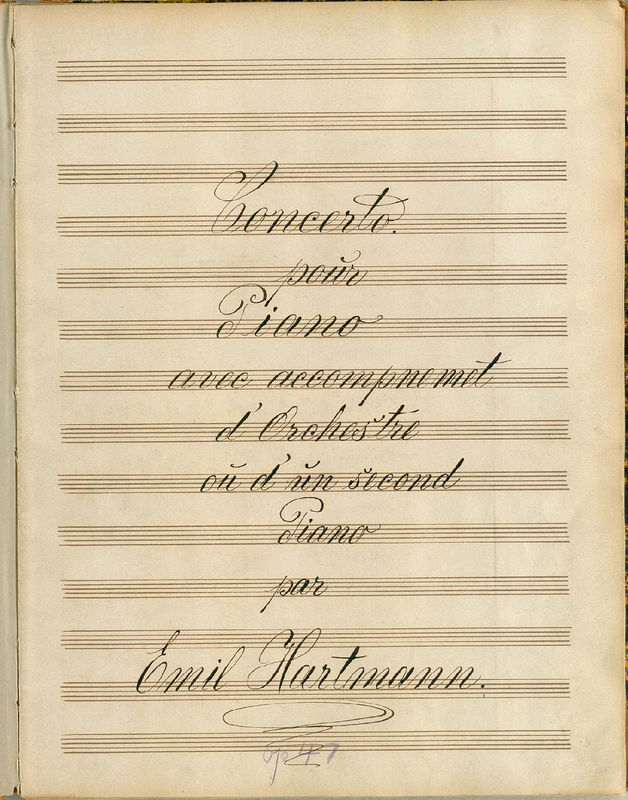 Concerto.
pour
Piano
avec accompnemet
d'Orchestre
oŭ d'ŭn second
Piano
par
Emil Hartmann.
op 47